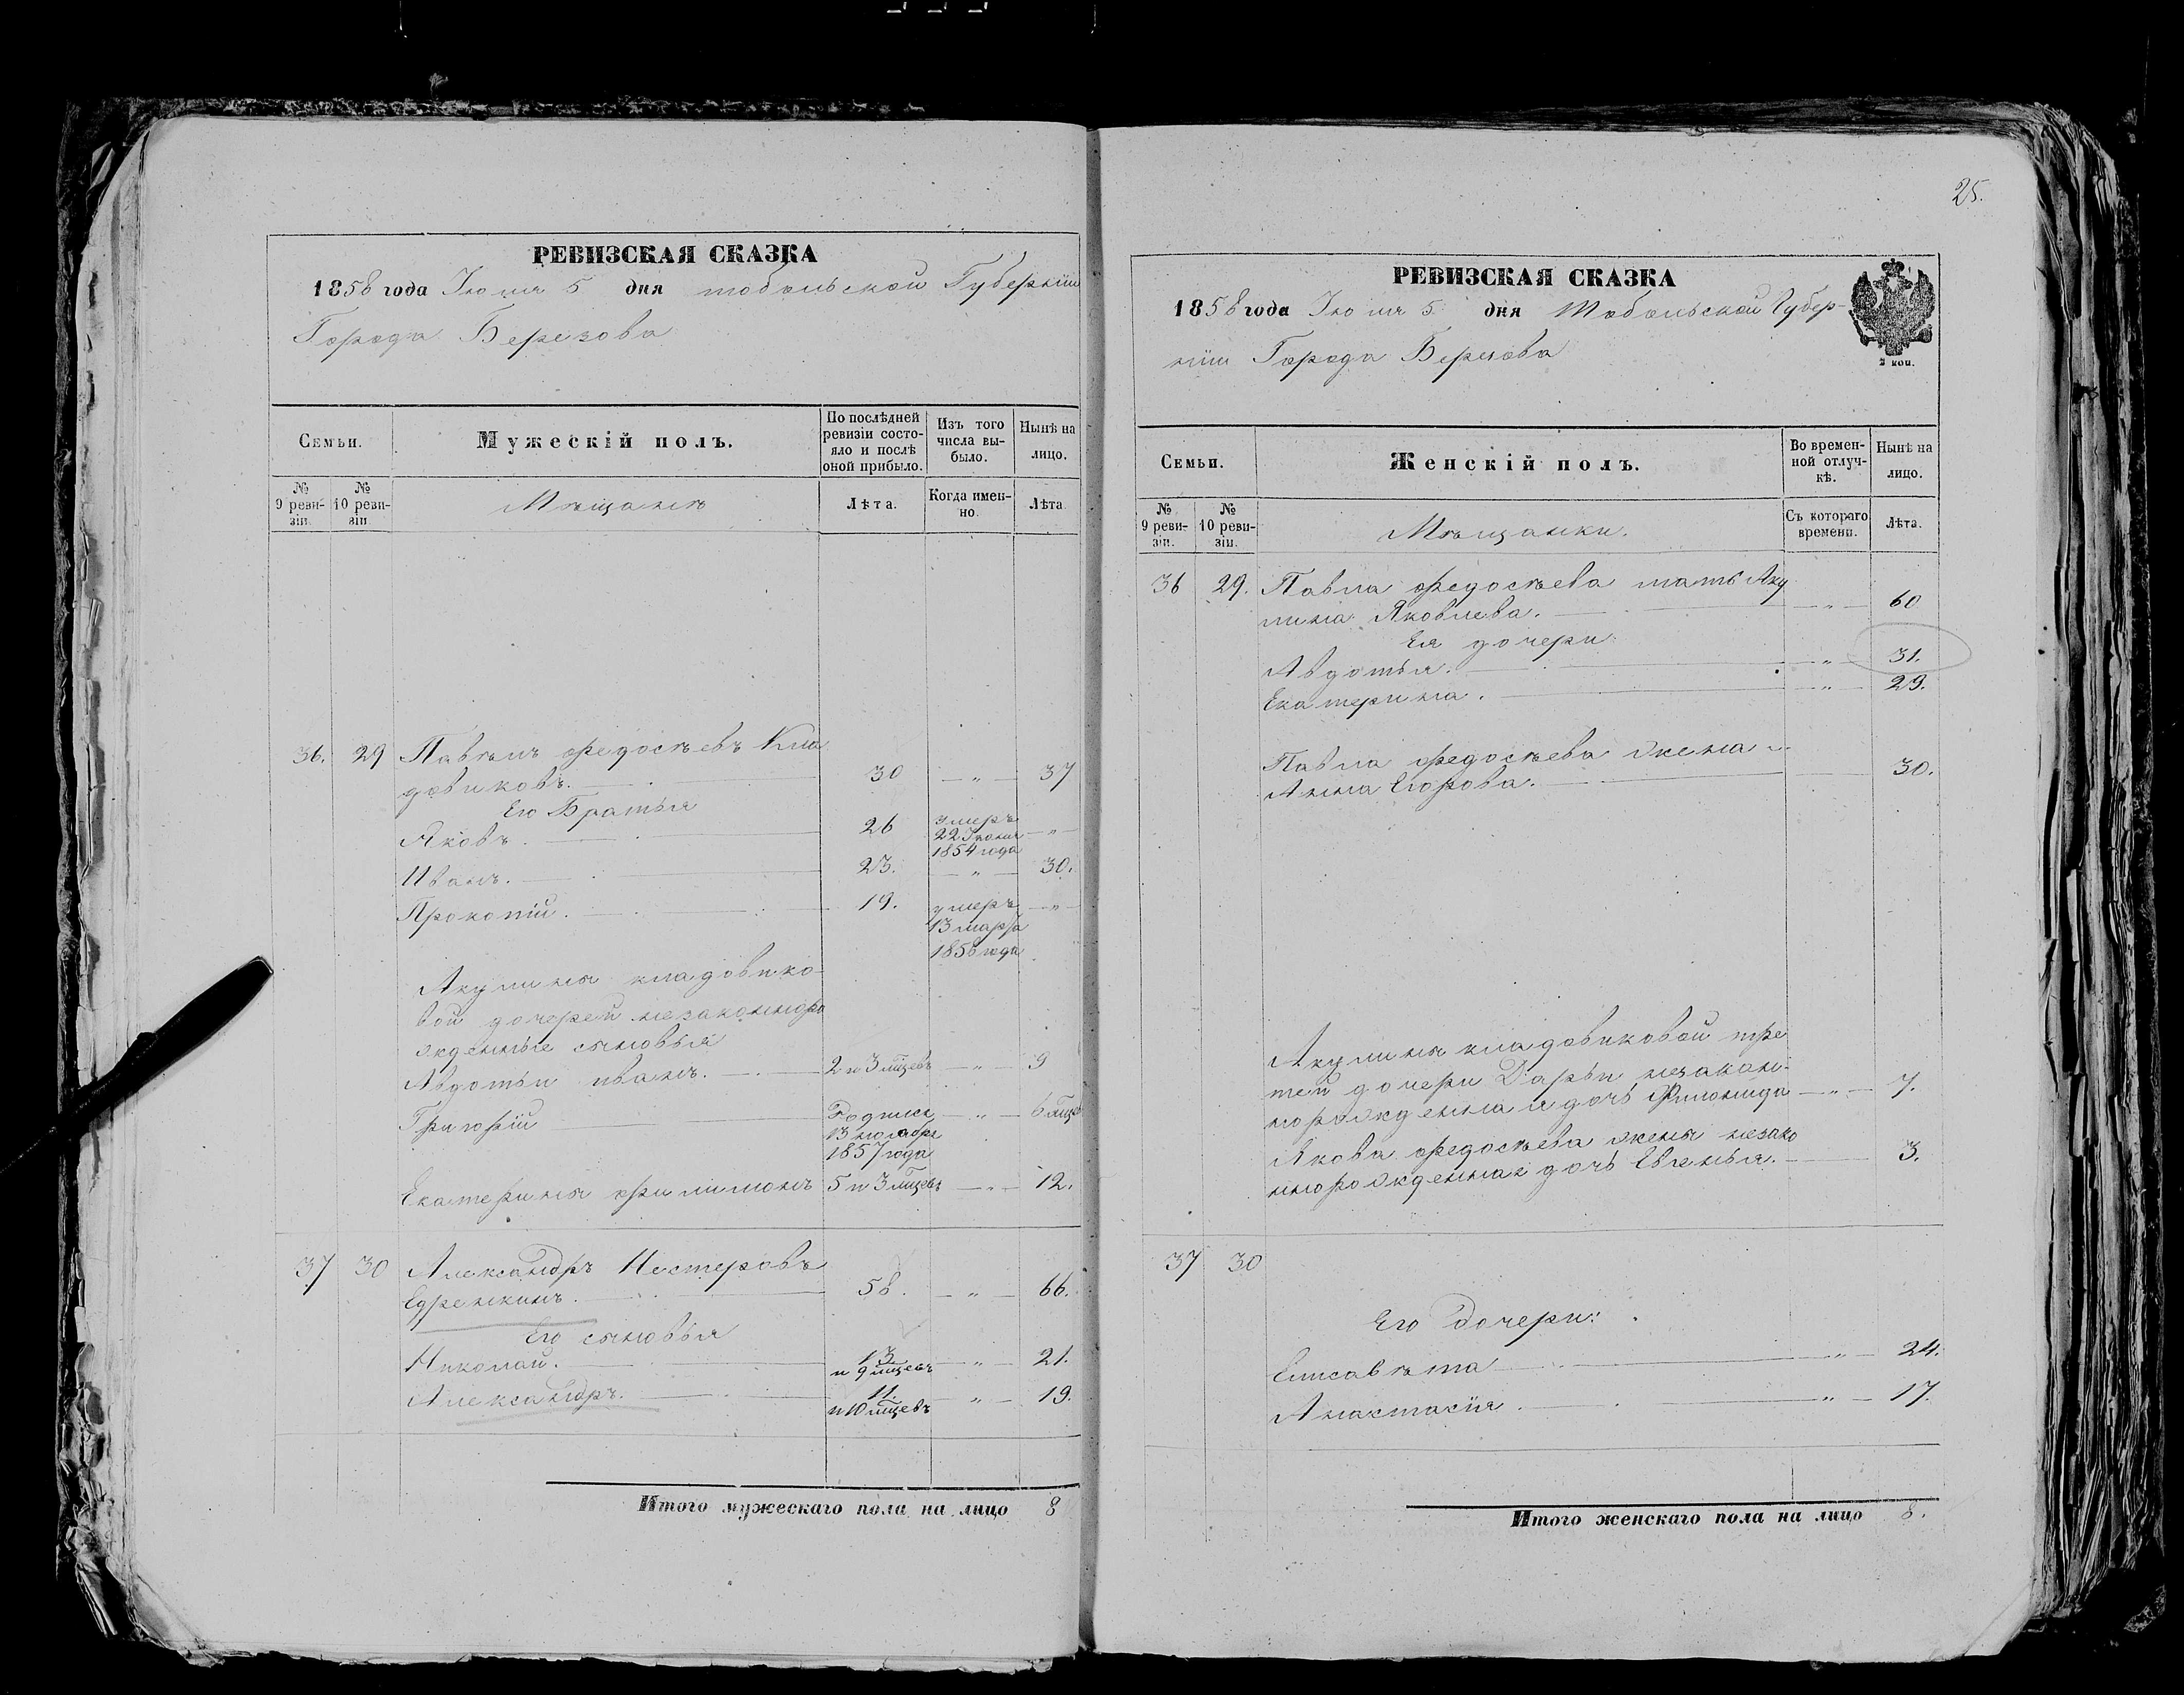 РЕВИЗСКАЯ СКАЗКА
1858 года Іюня 5 дня Тобольской Губерніи
Города Березова
Семьи.
Мужескій полъ.
По послѣдней ревизіи состо-яло и послѣ оной прибыло.
Изъ того числа вы-было.
Нынѣ на лицо.
№ 9 реви-зіи.
№ 10 реви-зіи
Мѣщанѣ
Лѣта.
Когда имен-но.
Лѣта.
36. 29 Павелъ Федосѣевъ Кла
довиковъ. 30 — „ — 37
Его Братья
Яковъ. 26 умеръ 22 Іюня 1854 года — „ —
Иванъ. 23. — „ — 30.
Прокопій. 19. умеръ 13 марта 1856 года — „ —
Акулины кладовико-
вой дочерей незаконноро
жденные сыновья
Авдотьи Иванъ. 2 и 3 мцевъ — „ — 9
Григорій Родился 13 ноября 1857 года — „ — 6 мцев
Екатерины Филимонъ 5 и 3 мцевъ — „ — 12.
37 30 Александръ Нестеровъ
Едренкинъ. 58. — „ — 66.
Его сыновья
Николай. 13 и 9 мцевъ — „ — 21.
Александръ. 11. и 10 мцевъ — „ — 19.
Итого мужескаго пола на лицо 8
25.
РЕВИЗСКАЯ СКАЗКА
1858 года Іюня 5 дня Тобольской Губер-
ніи Города Березова
2 коп.
Семьи.
Женскій полъ.
Во времен-ной отлуч-кѣ.
Нынѣ на лицо.
№ 9 реви-зіи.
№ 10 реви-зіи.
Мѣщанки.
Съ котораго времени.
Лѣта.
36 29. Павла Федосѣева мать Аку
лина Яковлева. — „ — 60
Ея дочери
Авдотья. — „ — 31.
Екатерина. — „ — 29.
Павла Федосѣева жена
Анна Егорова. 30.
Акулины кладовиковой тре
тей дочери Дарьи незакон-
норожденная дочь Филонида — „ — 7.
Якова Федосѣева жены незако
ннорожденная дочь Евгенья. 3.
37 30
Его Дочери:
Елисавѣта — „ — 24.
Анастасія. — „ — 17.
Итого женскаго пола на лицо 8.